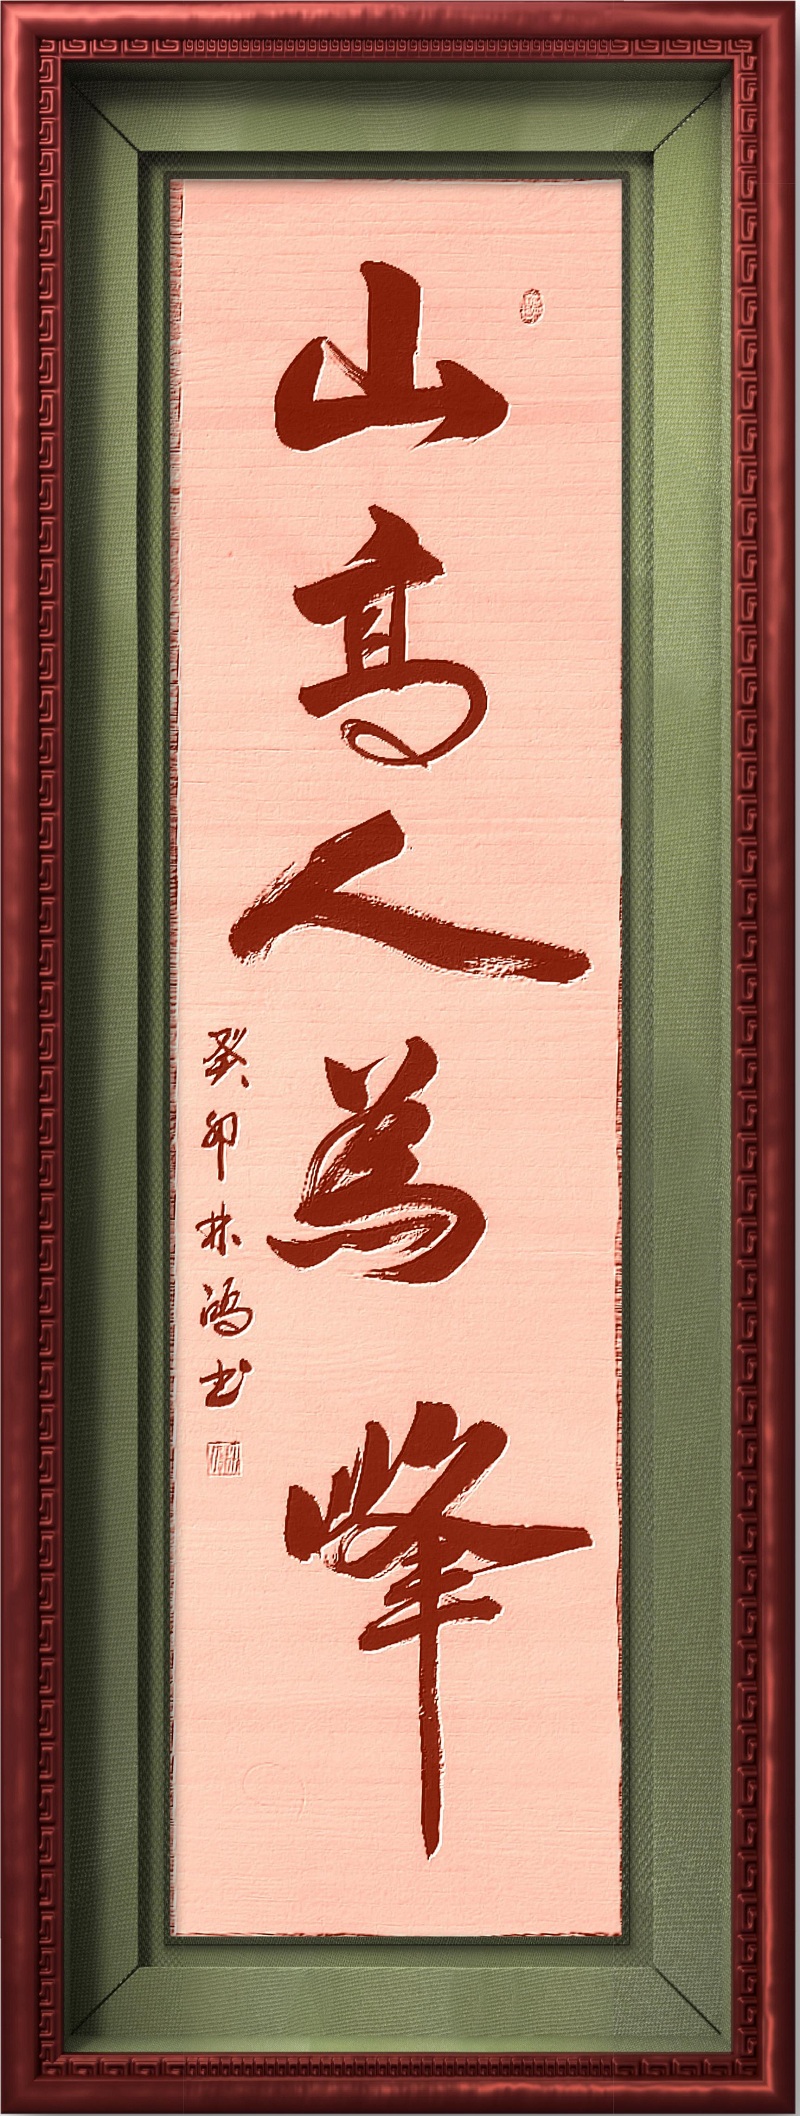 山高人為峰
癸卯林鴻书